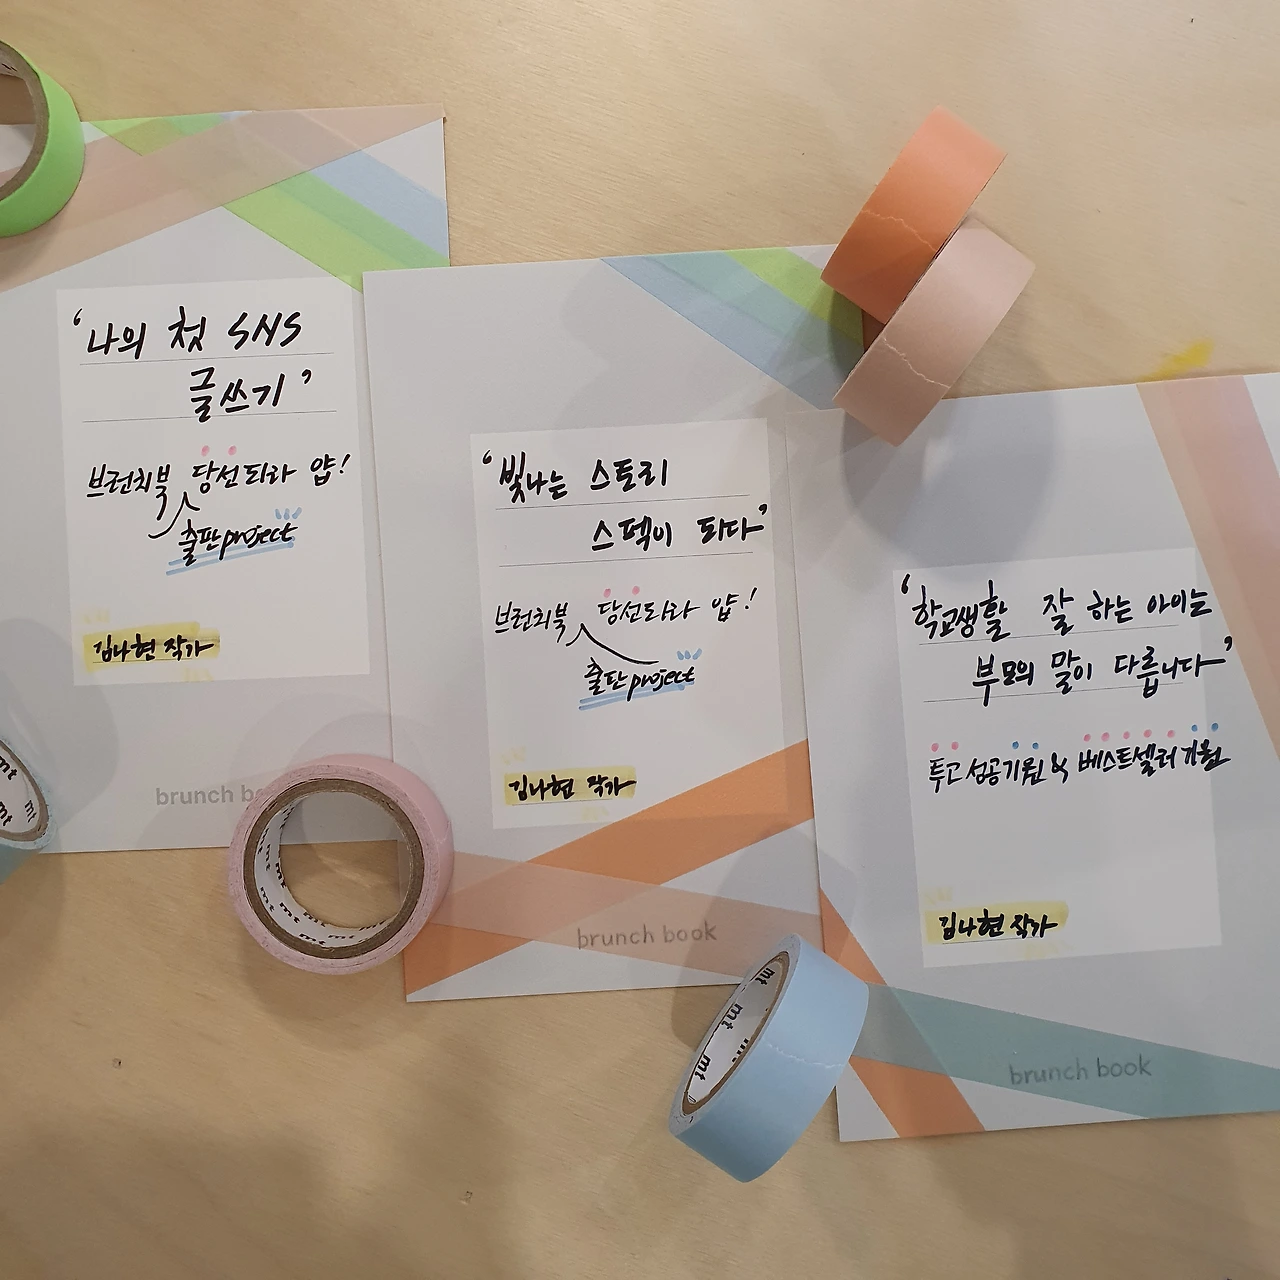 ‘나의 첫 SNS
글쓰기’
브런치북 당선되라 얍!
출판project
김나현 작가
brunch b
‘빛나는 스토리
스펙이 되다’
브런치북 당선되라 얍!
출판project
김나현 작가
brunch book
‘학교생활 잘 하는 아이는
부모의 말이 다릅니다’
투고성공기원 & 베스트셀러 기원
김나현 작가
brunch book
mt
mt mt mt mt mt mt
mt mt mt mt